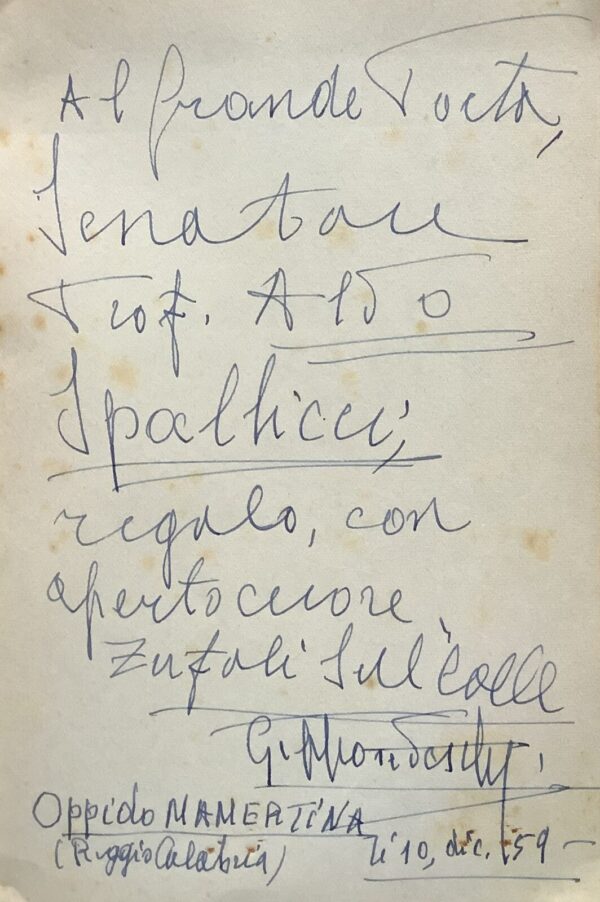 Al Grande Poeta,
Senatore
Prof. Aldo
Spallicci,
regalo, con
aperto cuore,
Zufoli sul colle
Oppido MAMERTINA
(Reggio Calabria) li 10, dic. 59 -